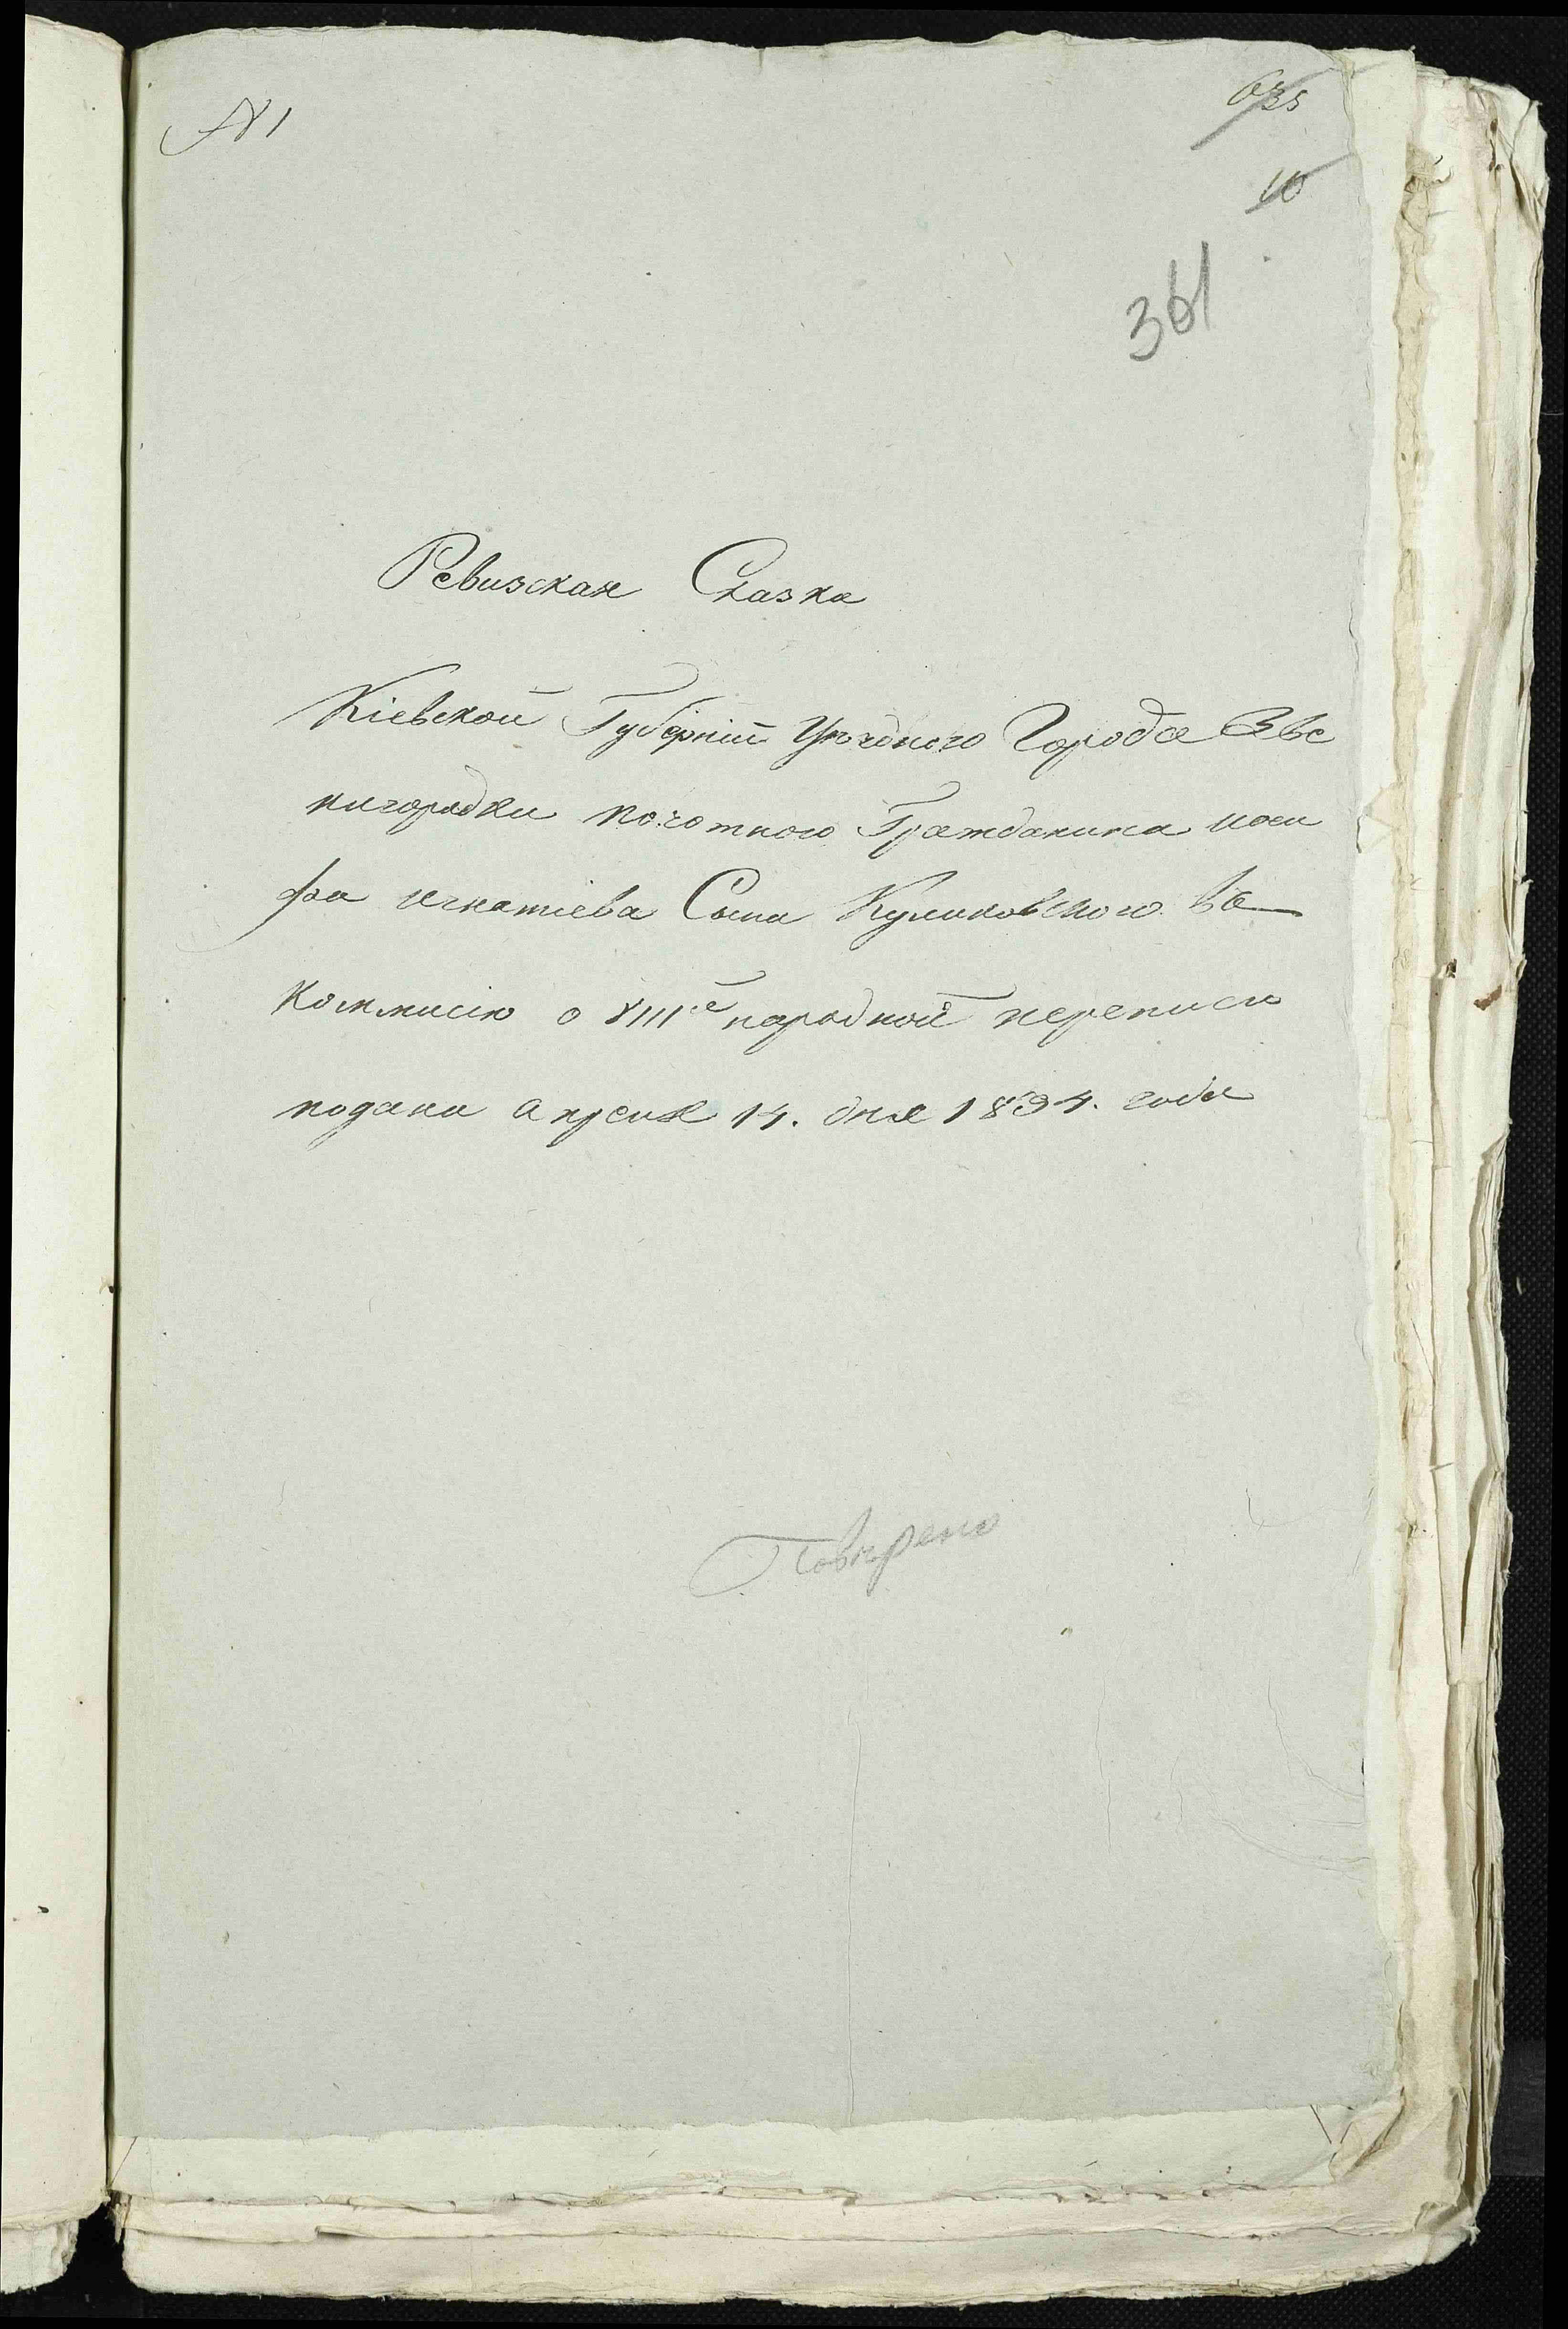 № 1
635
10
361
Ревизская Сказка
Кіевской Губерніи Уѣздного Города Зве
нигородки почотного Гражданина иоси
фа игнатіева Сына Куликовского въ
коммисію о VIIIй народной переписи
подана апреля 14. дня 1834. года
Повѣрено